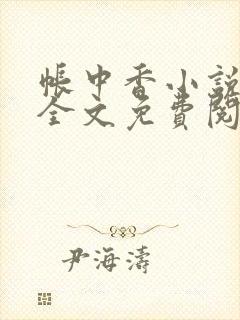 帳中香小說
全文免費閱
尹海濤